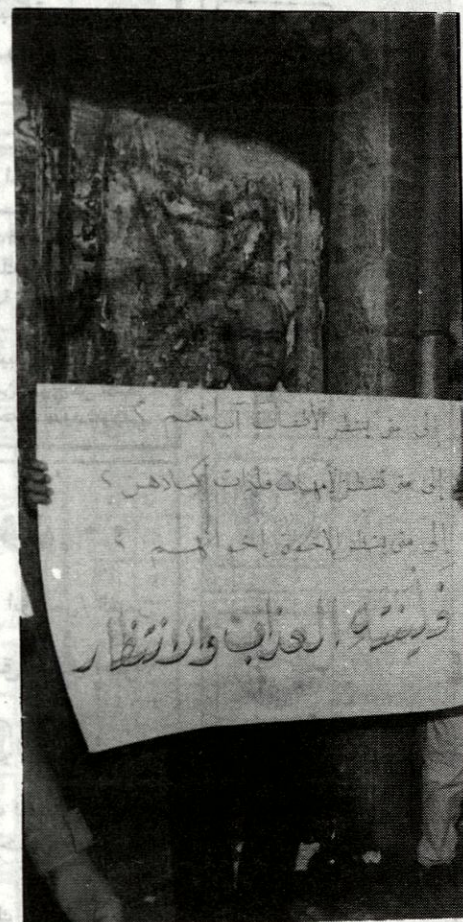 إلى متى ينتظر الأطفال آباءهم ؟
إلى متى تنتظر الأمهات فلذات أكبادهن ؟
إلى متى ينتظر الإخوة إخوانهم ؟
فلينته العذاب والانتظار